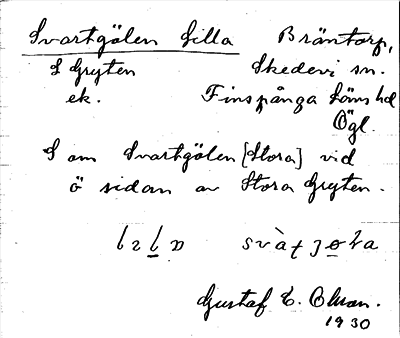 Svartgölen Lilla Bräntorp,
S Gryten Skedevi sn.
ek. Finspånga läns hd
Ögl.
S om Svartgölen [Stora] vid
ö sidan av Stora Gryten.
Gustaf E. Olson.
1930